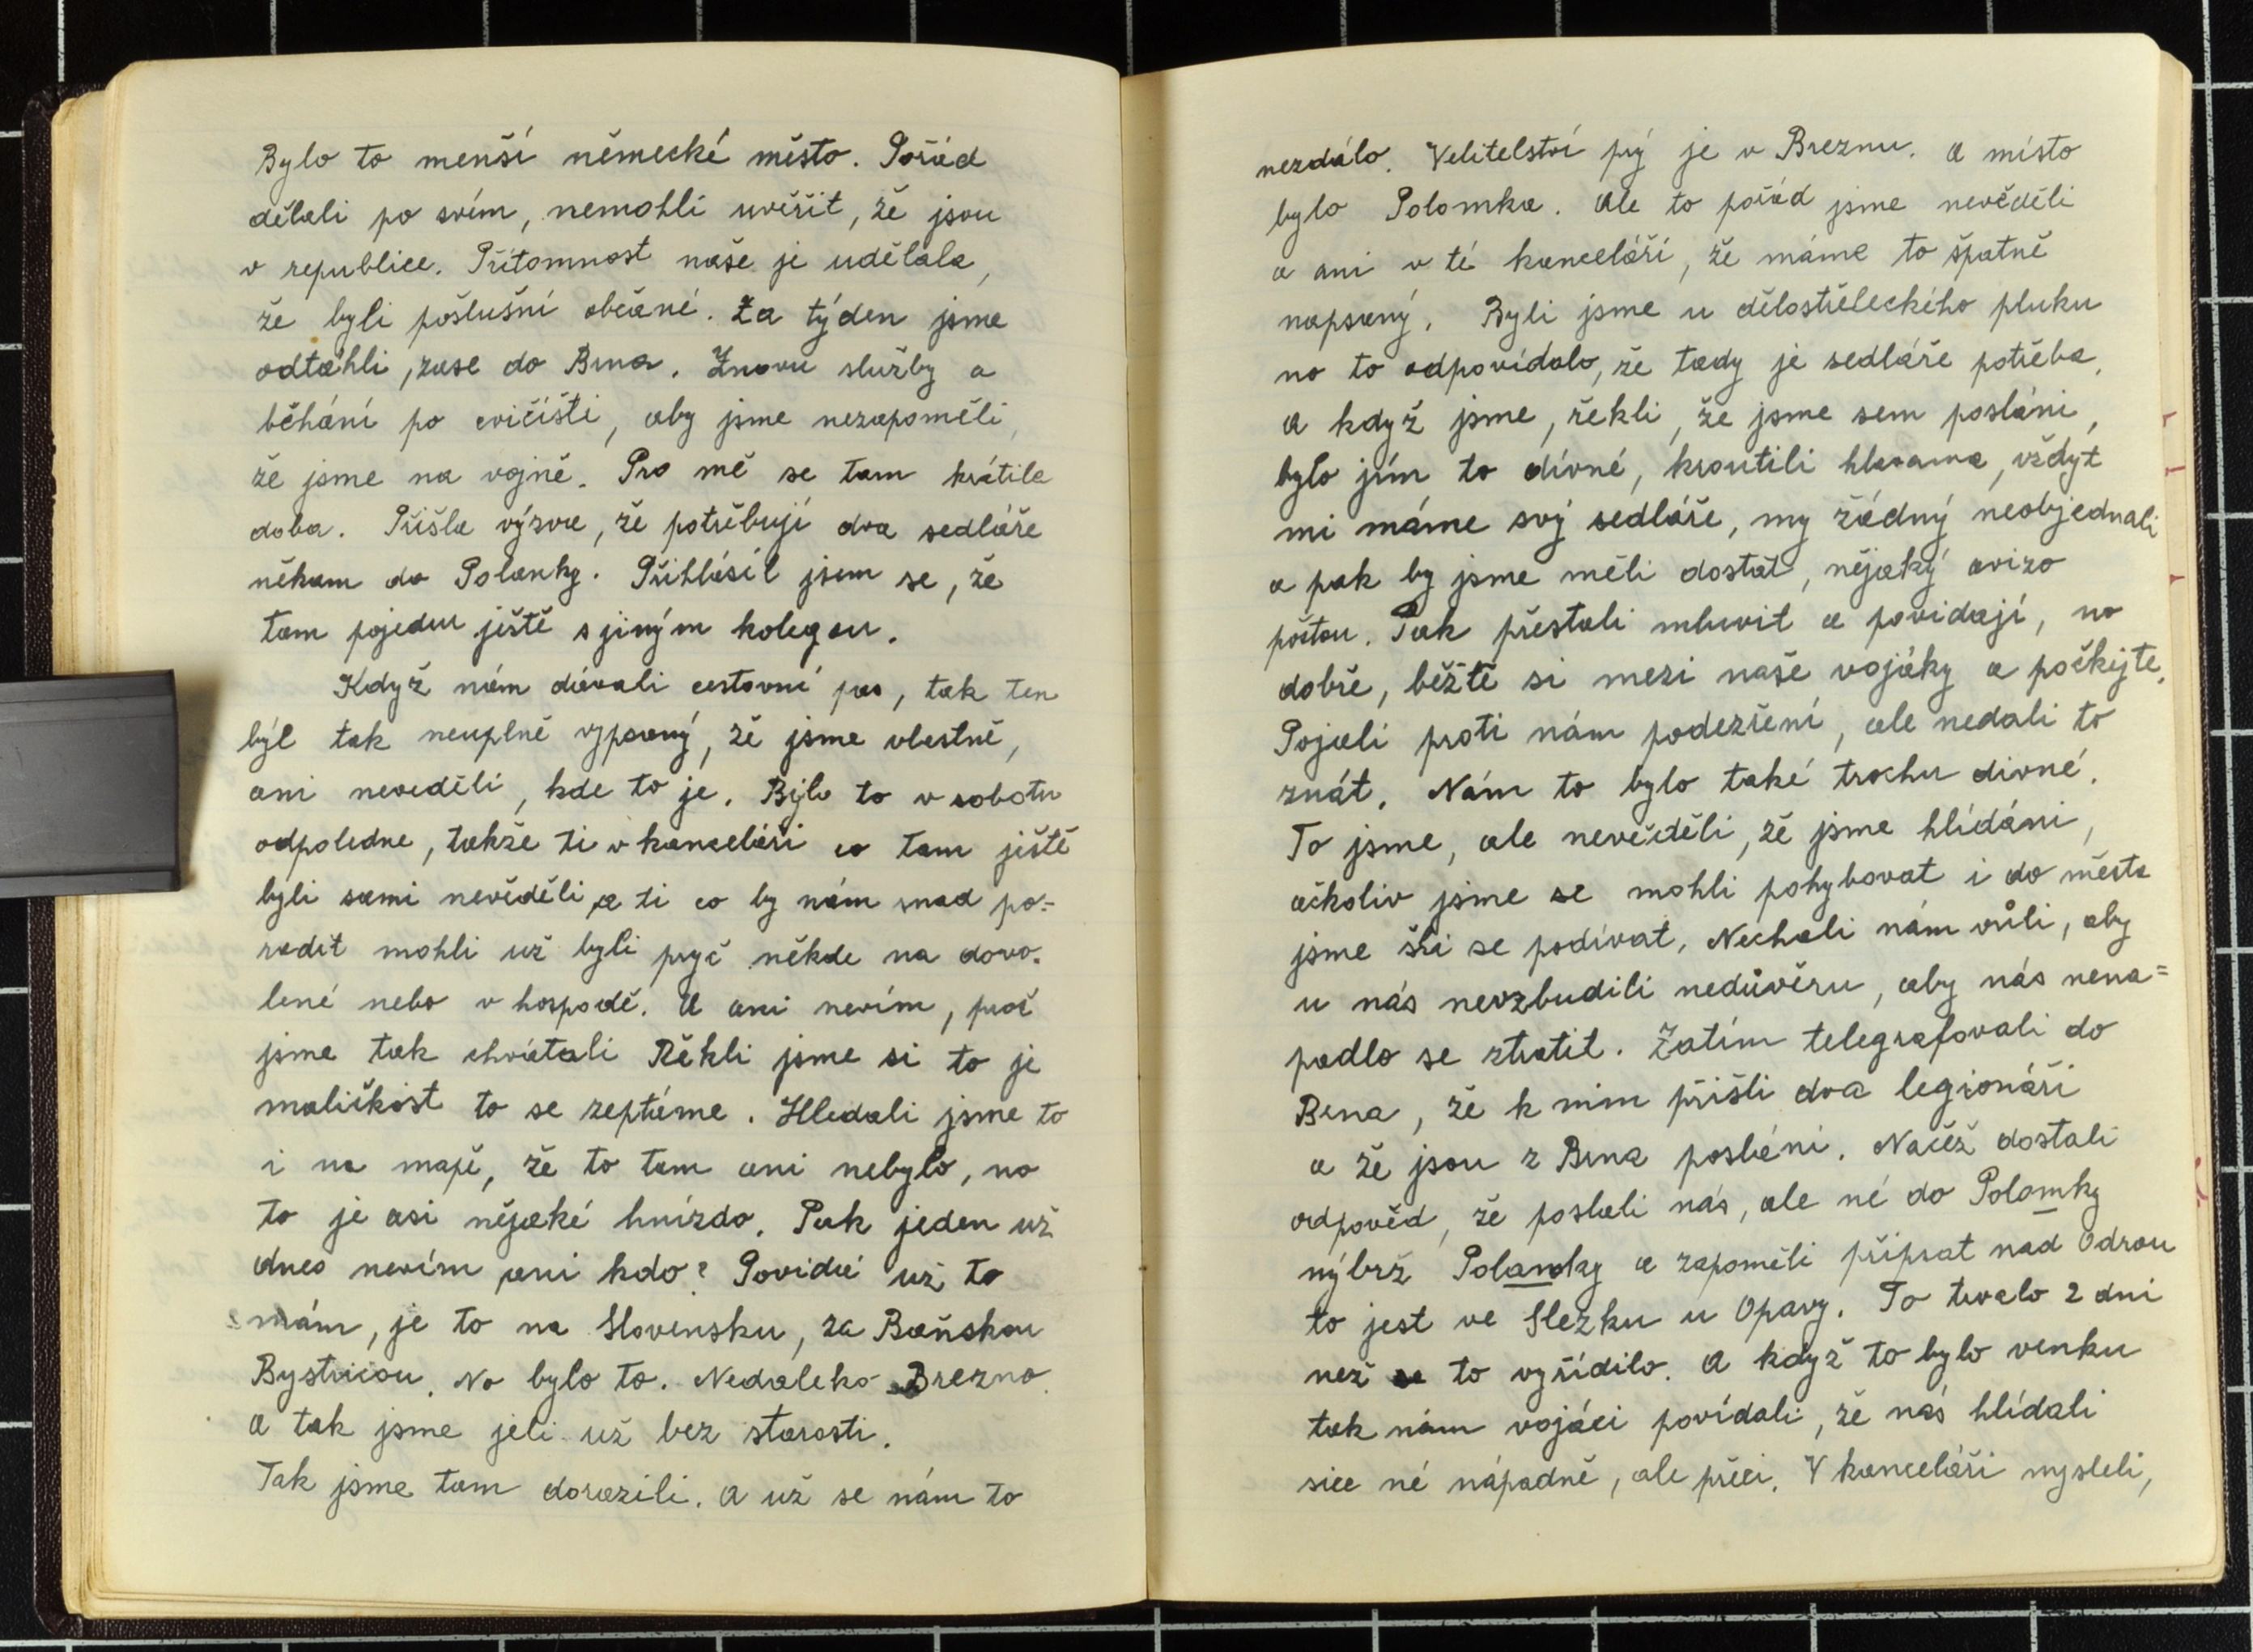 Bylo to menší německé město. Pořád
dělali po svím, nemohli uvěřit, že jsou
v republice. Přítomnost naše je udělala,
že byli poslušní občané. Za týden jsme
odtáhli, zase do Brna. Znovu služby a
běhání po cvičišti, aby jsme nezapoměli,
že jsme na vojně. Pro mě se tam krátila
doba. Přišla výzva, že potřebují dva sedláře
někam do Polanky. Přihlásil jsem se, že
tam pojedu ještě s jiným kolegou.
Když nám dávali cestovní pas, tak ten
býl tak neuplně vypsaný, že jsme vlastně,
ani nevěděli, kde to je. Bylo to v sobotu
odpoledne, takže ti v kanceláři co tam ještě
byli sami nevěděli, a ti co by nám snad po=
radit mohli už byli pryč někde na dovo=
lené nebo v hospodě. A ani nevím, proč
jsme tak chvátali Řekli jsme si to je
maličkost to se zeptáme. Hledali jsme to
i na mapě, že to tam ani nebylo, no
to je asi nějaké hnízdo. Pak jeden už
dnes nevím ani kdo? Povidá už to
mám, je to na Slovensku, za Baňskou
Bystricou. No bylo to. Nedaleko Brezno.
A tak jsme jeli už bez starosti.
Tak jsme tam dorazili. A už se nám to
nezdálo. Velitelství prý je v Breznu. A místo
bylo Polomka. Ale to pořád jsme nevěděli
a ani v té kanceláři, že máme to špatně
napsaný. Byli jsme u dělostřeleckého pluku
no to odpovídalo, že tady je sedláře potřeba.
A když jsme, řekli, že jsme sem posláni,
bylo jím to divné, kroutili hlavama, vždyt
mi máme svý sedláře, my žádný neobjednali
a pak by jsme měli dostat, nějaký avizo
poštou. Pak přestali mluvit a povidají, no
dobře, běžte si mezi naše vojáky a počkejte.
Pojali proti nám podezření, ale nedali to
znát. Nám to bylo také trochu divné.
To jsme, ale nevěděli, že jsme hlídáni,
ačkoliv jsme se mohli pohybovat i do města
jsme šli se podívat. Nechali nám vůli, aby
u nás nevzbudili nedůvěru, aby nás nena=
padlo se ztratit. Zatím telegrafovali do
Brna, že k nim přišli dva legionáři
a že jsou z Brna posláni. Načež dostali
odpověd, že poslali nás, ale né do Polomky
nýbrž Polanky a zapoměli připsat nad Odrou
to jest ve Slezku u Opavy. To trvalo 2 dni
než se to vyřídilo. A když to bylo venku
tak nám vojáci povídali, že nás hlídali
sice né nápadně, ale přeci. V kanceláři mysleli,